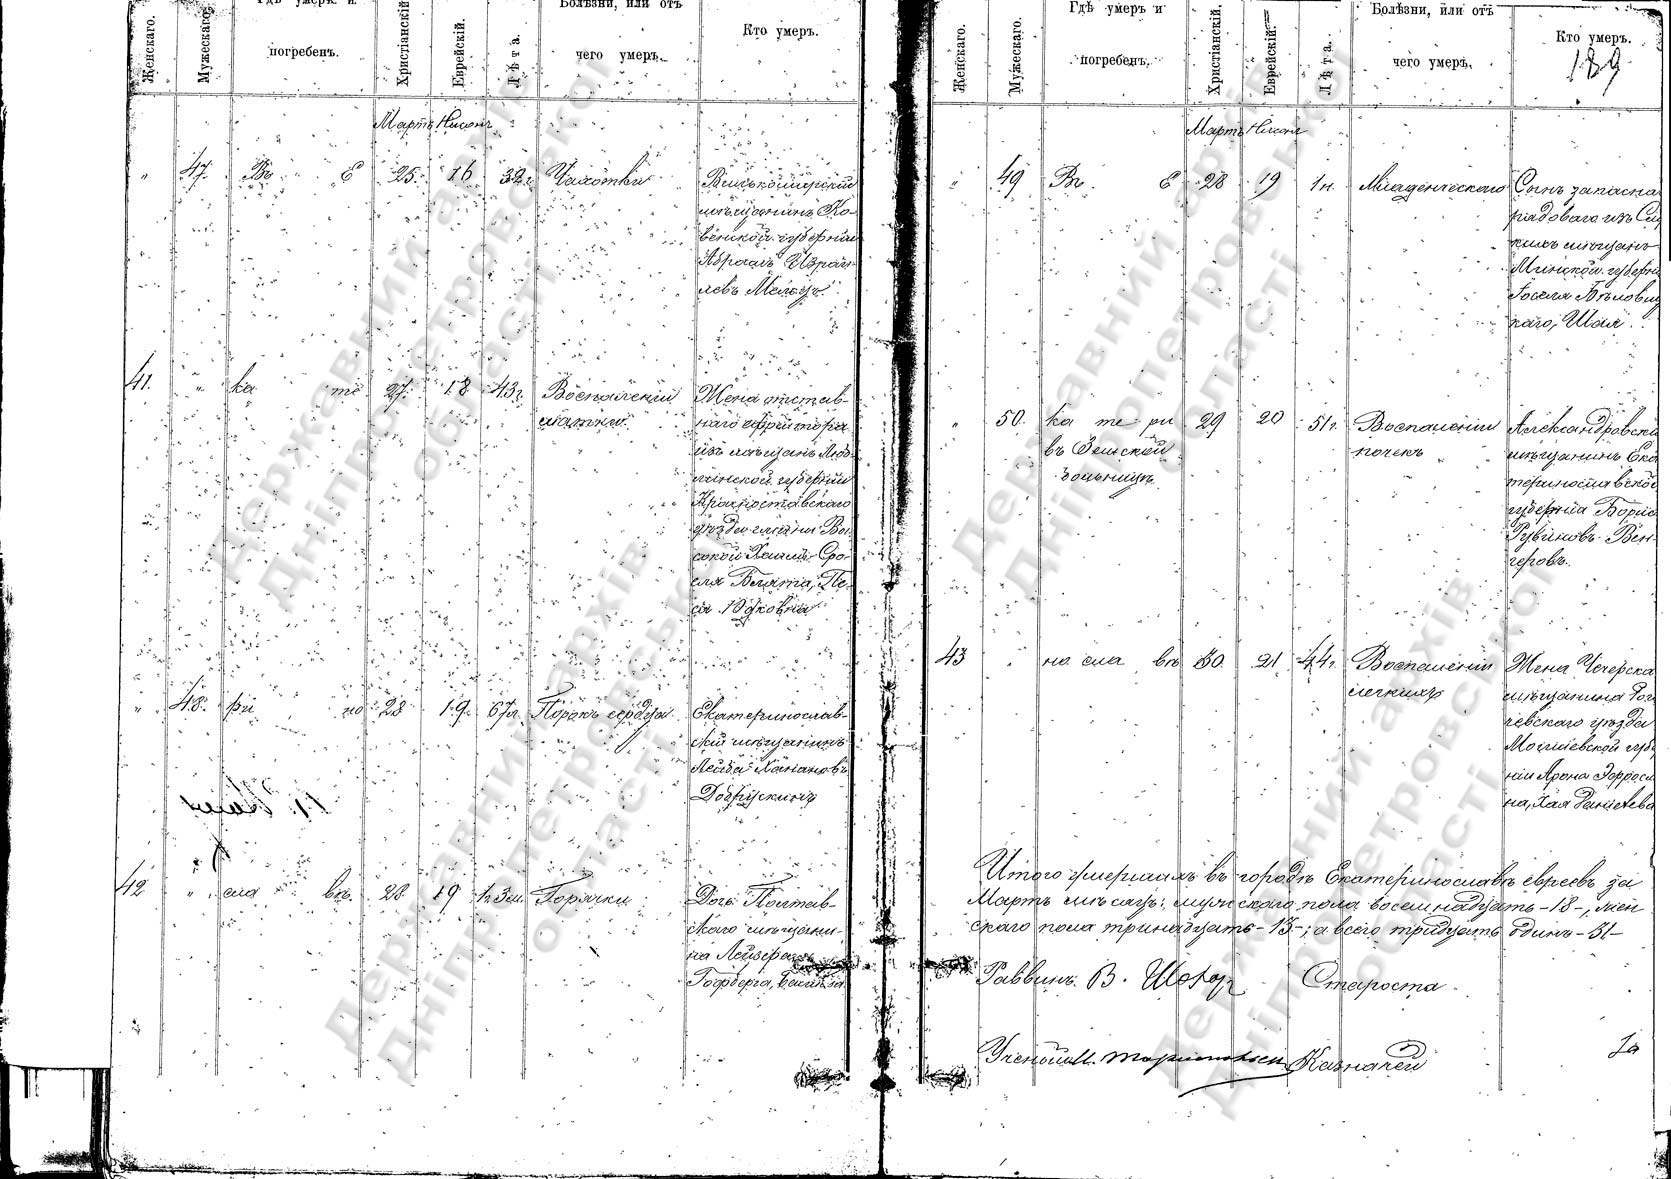 Женскаго.
Мужескаго.
Гдѣ умеръ и
погребенъ.
Христіанскій
Еврейскій.
Лѣта.
Болѣзни, или отъ
чего умеръ.
Кто умеръ.
Мартъ Нисонъ
„ 47. Въ Е 25. 16 32г. Чахотки
Вилькомирскій
мѣщанинъ Ко-
венской губерніи
Абрамъ Израи-
левъ Мельцъ.
41. „ ка те 27. 18 43г. Воспаленія
матки
Жена отстав-
наго ефрейтора
изъ мѣщанъ Люб-
линской губерніи
уѣзда гмины Вы-
сокой Хаимъ-Сро-
ля Блята, Пе-
са Юдковна
„ 48. ри но 28 19. 67л. Порокъ сердца
Екатеринослав-
скій мѣщанинъ
Лейба Ханановъ
Добрускинъ
42 „ сла въ. 28 19 1г. 3м. Горячки
Дочь Полтав-
скаго мѣщани-
на Лейзера
Гофберга,
Женскаго.
Мужескаго.
Гдѣ умеръ и
погребенъ.
Христіанскій.
Еврейскій.
Лѣта.
Болѣзни, или отъ
чего умеръ.
Кто умеръ.
189
Мартъ Нисонъ
„ 49 Въ Е 28 19 1н. Младенческаго
Сынъ запасна
рядоваго изъ
кихъ мѣщанъ
Минской губерн
Іоселя Бѣловиц
каго, Шая.
„ 50. ка те ри 29 20 51г. Воспаленія
въ Земской почекъ
больницѣ
Александровскі
мѣщанинъ Ека
теринославской
губерніи Борис
Рувиновъ Вен-
геровъ.
43 „ но сла въ 30. 21 44г. Воспаленія
легкихъ
Жена Чечерска
мѣщанина Рог
чевскаго уѣзда
Могилевской губ
ніи Арона
на, Хая Даніелева
Итого умершихъ въ городѣ Екатеринославѣ евреевъ за
Мартъ мѣсяцъ: мужскаго пола восемнадцать -18-, жен
скаго пола тринадцать -13-; а всего тридцать одинъ -31-
Раввинъ В. Шохоръ Староста
Ученый Казначей
Державний архів
Дніпропетровської
області